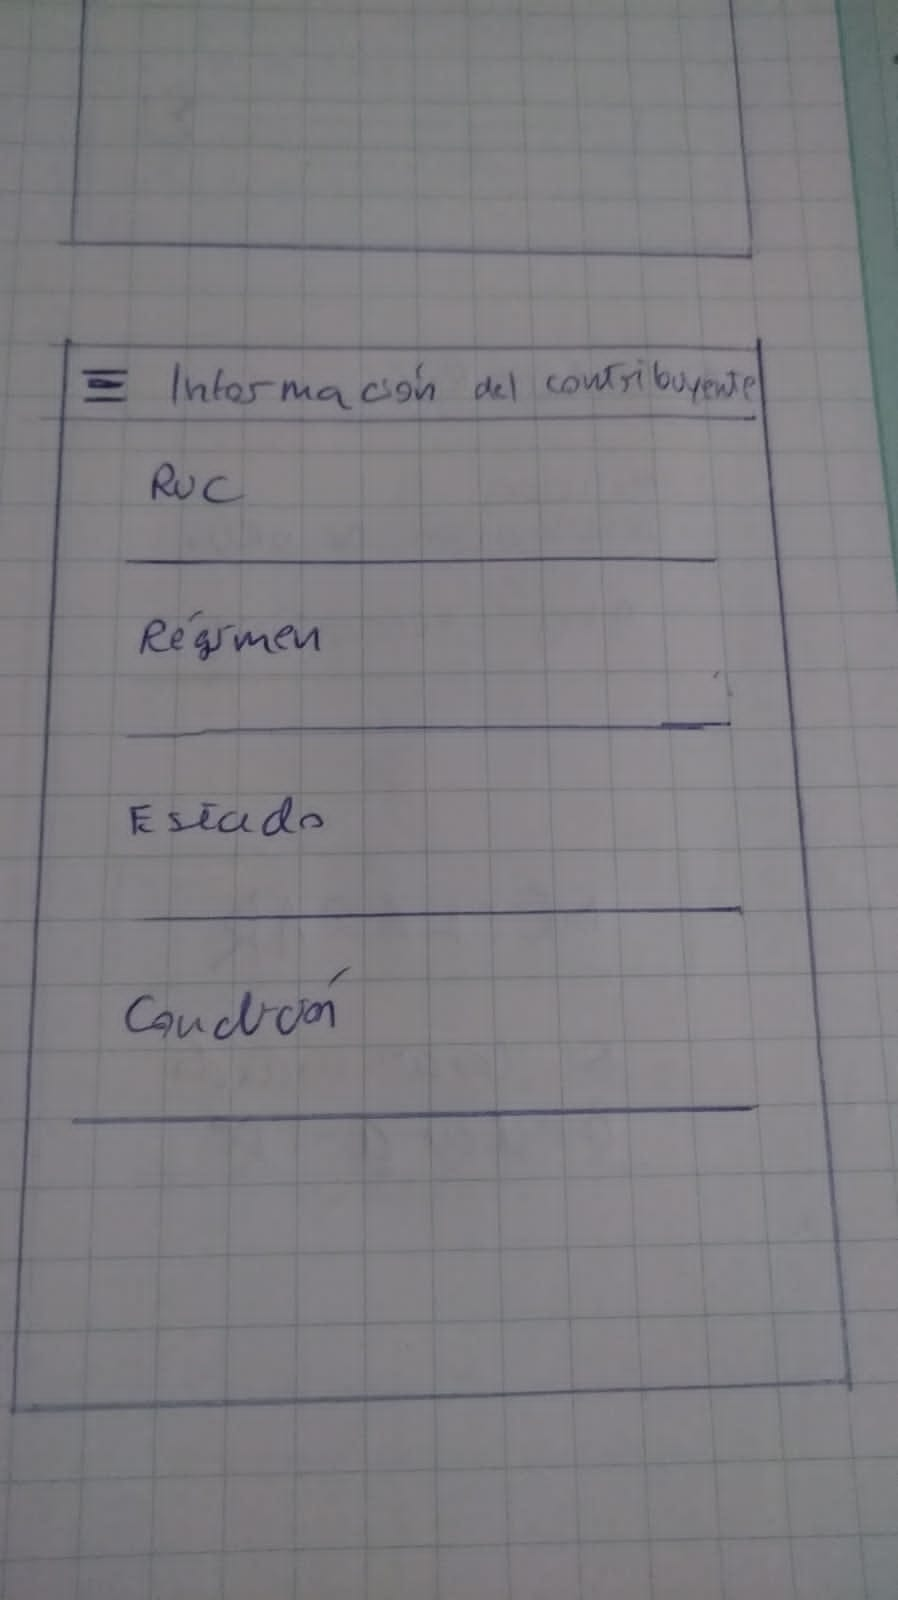 Información del contribuyente
RUC
Régimen
Estado
Condición